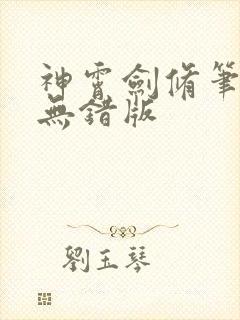 神霄劍脩筆
無錯版
劉玉琴